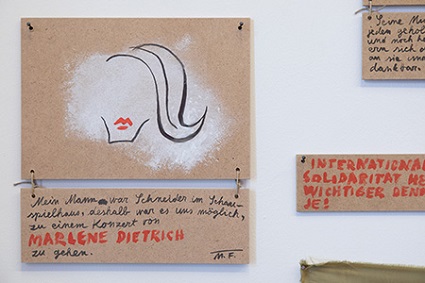 Mein Mann war Schneider im Schau-
spielhaus, deshalb war es uns möglich,
zu einem Konzert von
MARLENE DIETRICH
zu gehen.
M.F.
Seine Mu
jedem gehol
und noch h
ern sich
an sie un
dankbar.
INTERNATIONA
SOLIDARITÄT HE
WICHTIGER DEN
JE!